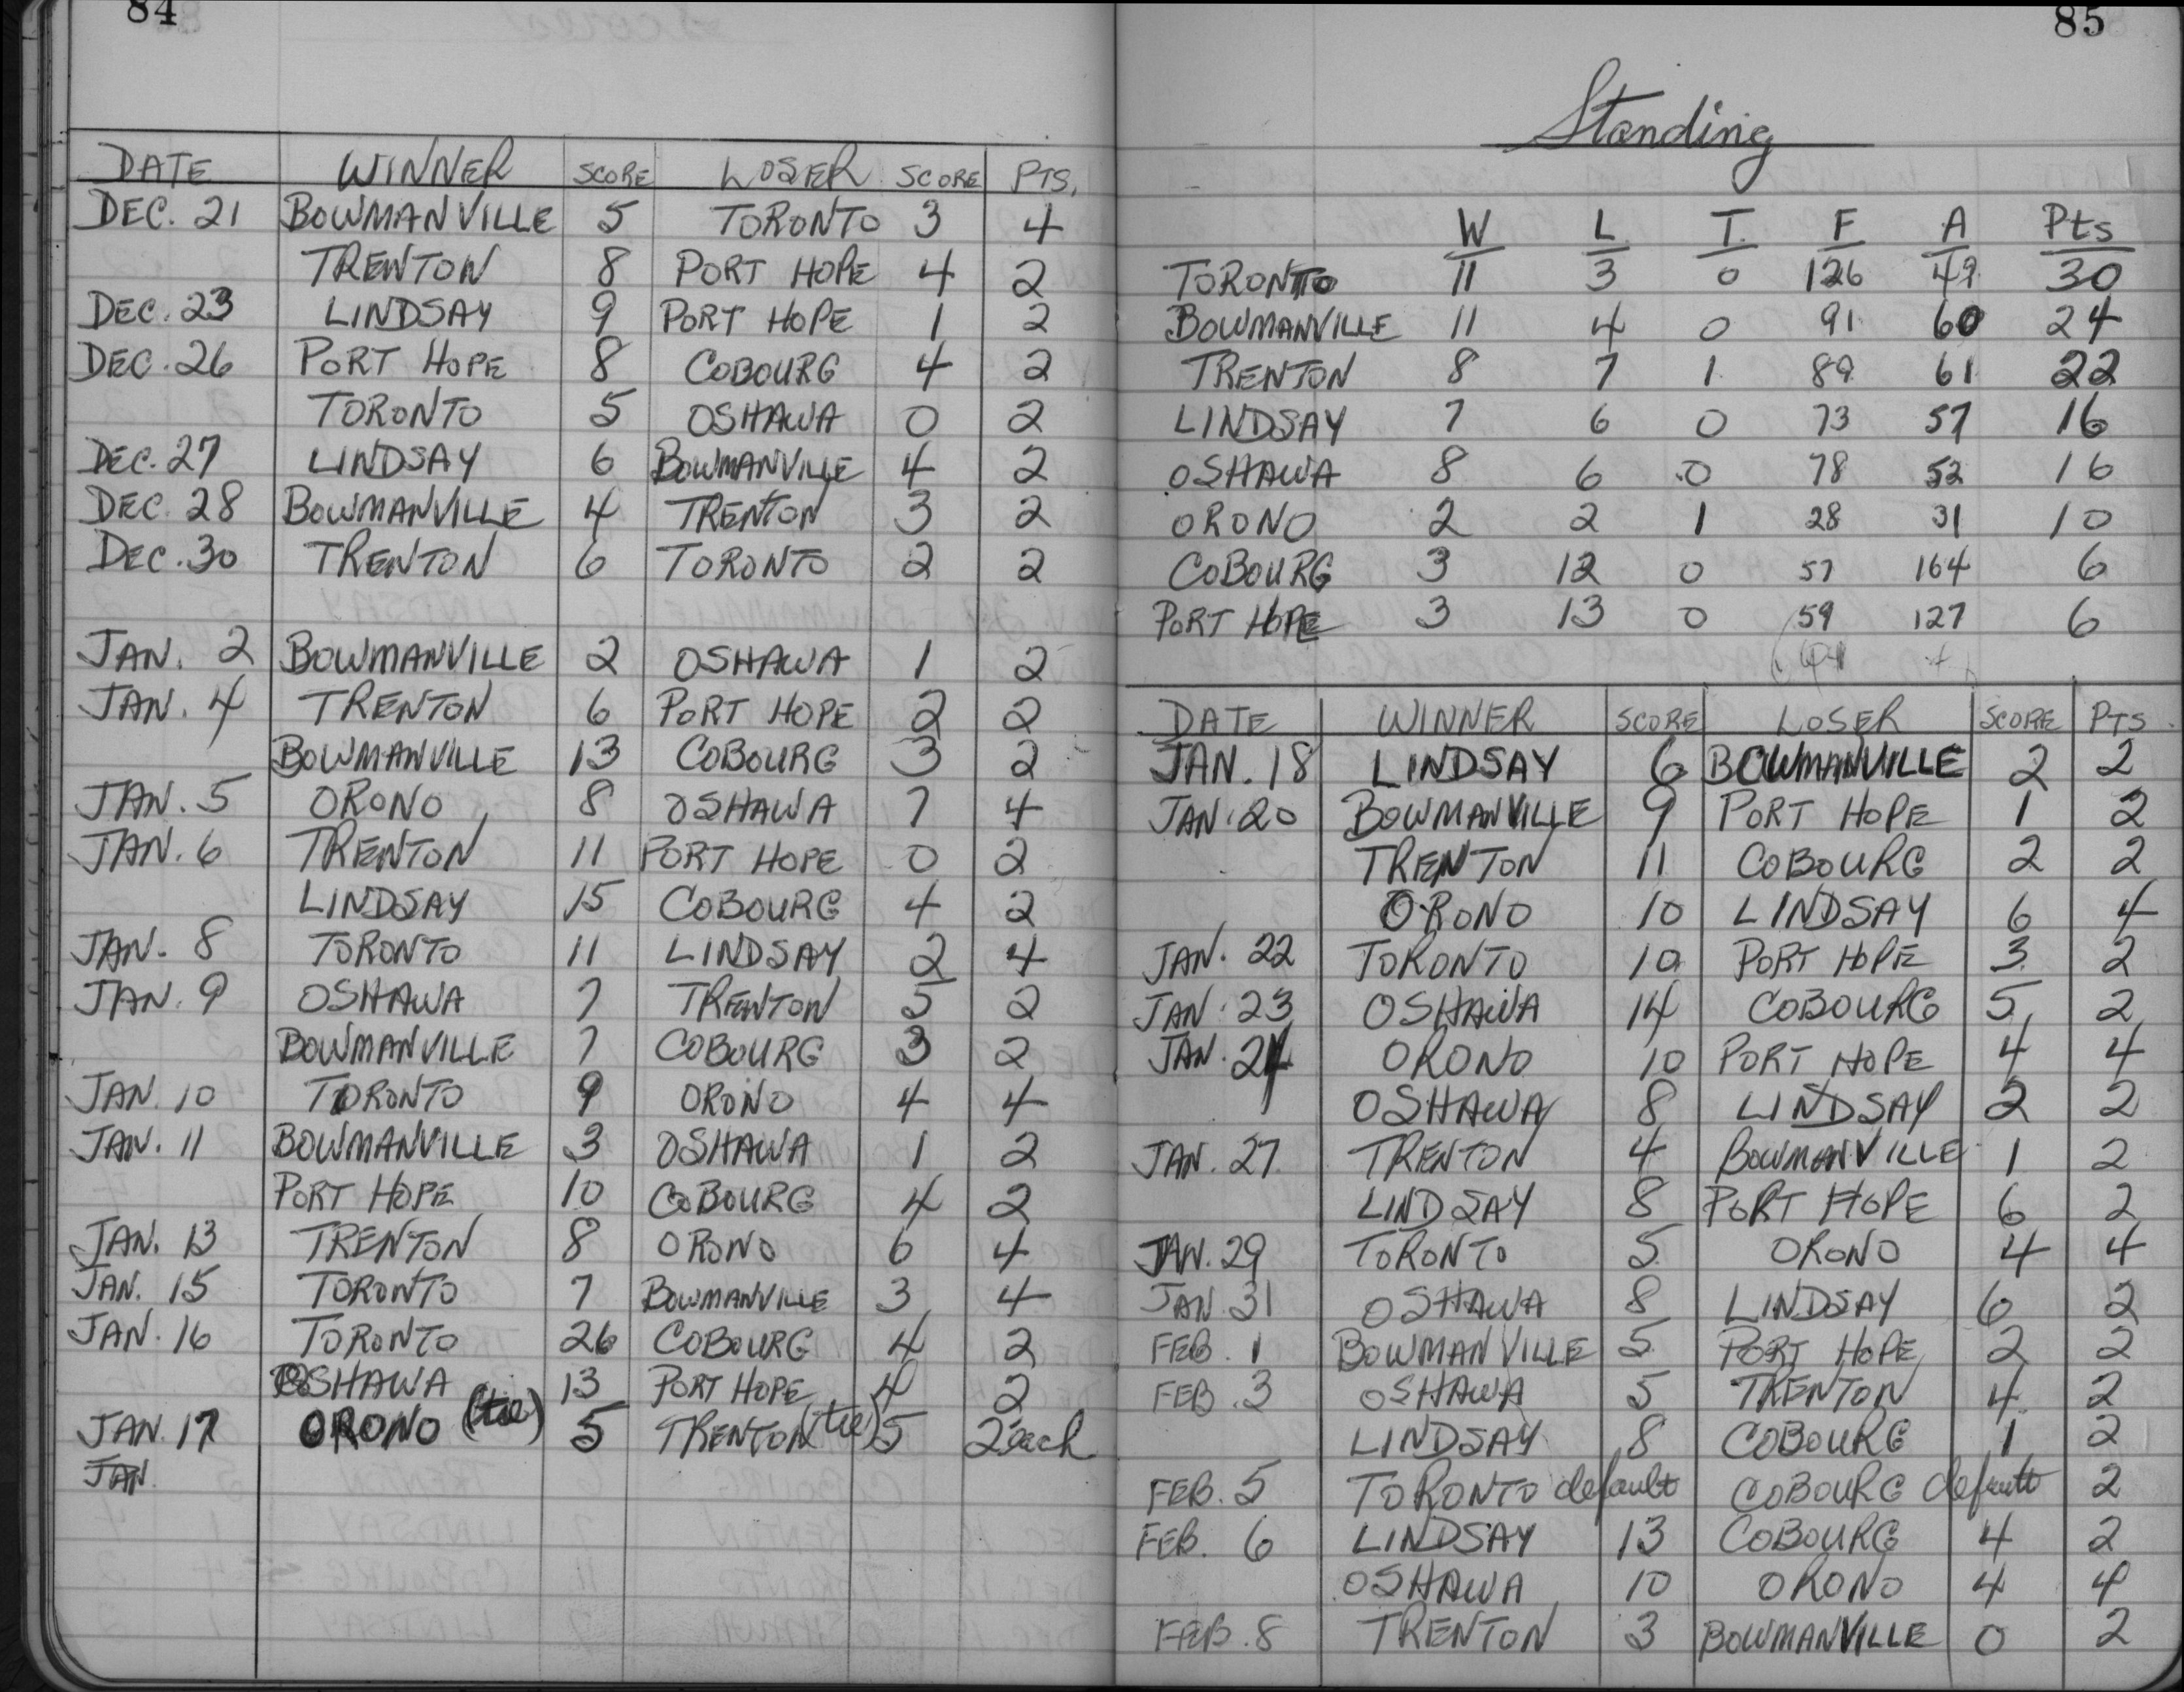 84
DATE WINNER SCORE LOSER SCORE PTS.
DEC. 21 BOWMANVILLE 5 TORONTO 3 4
TRENTON 8 PORT HOPE 4 2
DEC. 23 LINDSAY 9 PORT HOPE 1 2
DEC. 26 PORT HOPE 8 COBOURG 4 2
TORONTO 5 OSHAWA 0 2
DEC. 27 LINDSAY 6 BOWMANVILLE 4 2
DEC. 28 BOWMANVILLE 4 TRENTON 3 2
DEC. 30 TRENTON 6 TORONTO 2 2
JAN. 2 BOWMANVILLE 2 OSHAWA 1 2
JAN. 4 TRENTON 6 PORT HOPE 2 2
BOWMANVILLE 13 COBOURG 3 2
JAN. 5 ORONO 8 OSHAWA 7 4
JAN. 6 TRENTON 11 PORT HOPE 0 2
LINDSAY 15 COBOURG 4 2
JAN. 8 TORONTO 11 LINDSAY 2 4
JAN. 9 OSHAWA 7 TRENTON 5 2
BOWMANVILLE 7 COBOURG 3 2
JAN. 10 TORONTO 9 ORONO 4 4
JAN. 11 BOWMANVILLE 3 OSHAWA 1 2
PORT HOPE 10 COBOURG 4 2
JAN. 13 TRENTON 8 ORONO 6 4
JAN. 15 TORONTO 7 BOWMANVILLE 3 4
JAN. 16 TORONTO 26 COBOURG 4 2
OSHAWA 13 PORT HOPE 4 2
JAN. 17 ORONO (tie) 5 TRENTON (tie) 5 2 each
JAN.
85
Standing
W L T. F A Pts
TORONTO 11 3 0 126 49 30
BOWMANVILLE 11 4 0 91 60 24
TRENTON 8 7 1 89 61 22
LINDSAY 7 6 0 73 57 16
OSHAWA 8 6 0 78 52 16
ORONO 2 2 1 28 31 10
COBOURG 3 12 0 57 164 6
PORT HOPE 3 13 0 59 127 6
DATE WINNER SCORE LOSER SCORE PTS
JAN. 18 LINDSAY 6 BOWMANVILLE 2 2
JAN. 20 BOWMANVILLE 9 PORT HOPE 1 2
TRENTON 11 COBOURG 2 2
ORONO 10 LINDSAY 6 4
JAN. 22 TORONTO 10 PORT HOPE 3 2
JAN. 23 OSHAWA 14 COBOURG 5 2
JAN. 24 ORONO 10 PORT HOPE 4 4
OSHAWA 8 LINDSAY 2 2
JAN. 27 TRENTON 4 BOWMANVILLE 1 2
LINDSAY 8 PORT HOPE 6 2
JAN. 29 TORONTO 5 ORONO 4 4
JAN 31 OSHAWA 8 LINDSAY 6 2
FEB. 1 BOWMANVILLE 5 PORT HOPE 2 2
FEB. 3 OSHAWA 5 TRENTON 4 2
LINDSAY 8 COBOURG 1 2
FEB. 5 TORONTO default COBOURG default 2
FEB. 6 LINDSAY 13 COBOURG 4 2
OSHAWA 10 ORONO 4 4
FEB. 8 TRENTON 3 BOWMANVILLE 0 2